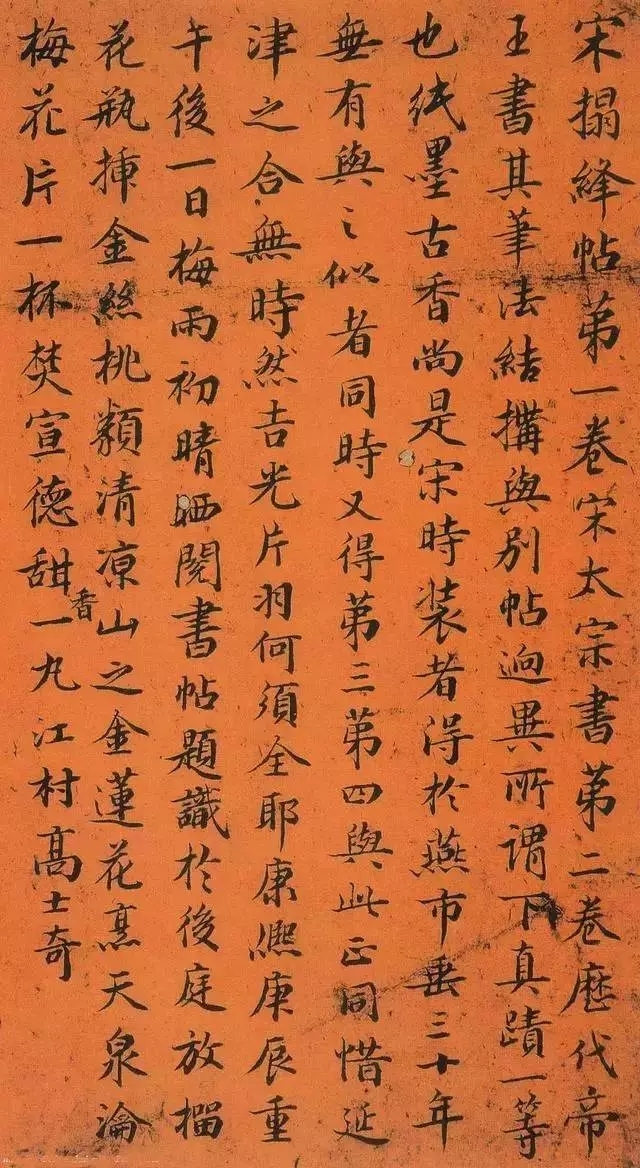 宋搨絳帖第一卷宋太宗書第二卷歷代帝
王書其筆法結搆與別帖逈異所謂下真蹟一等
也紙墨古香尚是宋時装者得於燕市垂三十年
無有與之似者同時又得第三第四與此正同惜延
津之合無時然吉光片羽何須全耶康熙庚辰重
午後一日梅雨初晴晒閱書帖題識於後庭放榴
花瓶揷金絲桃類清凉山之金蓮花烹天泉瀹
梅花片一杯焚宣德甜香一丸江村高士奇